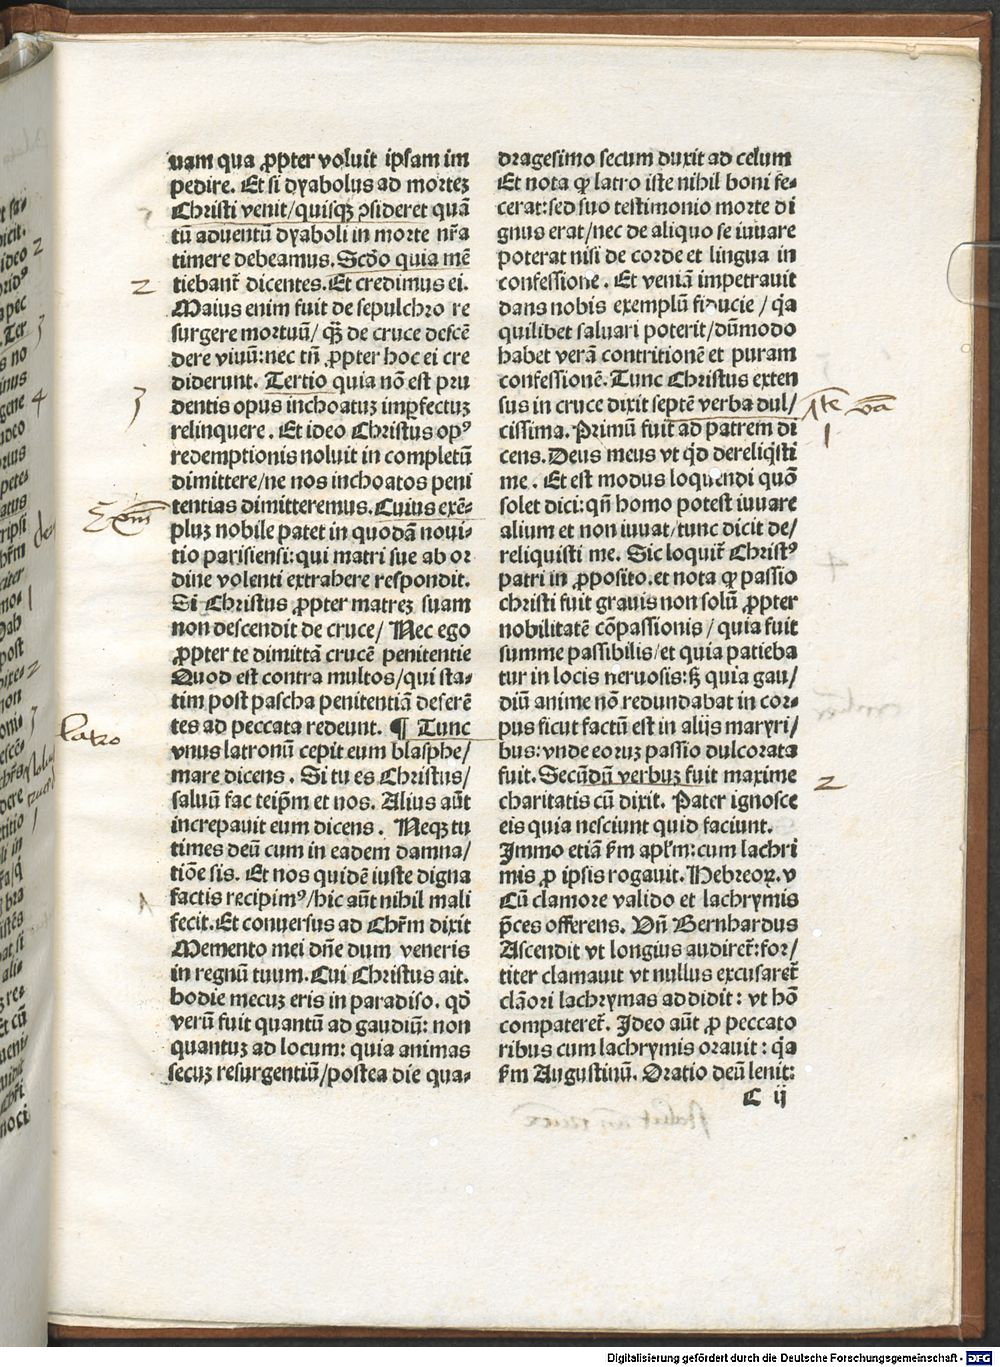 uam qua ꝓpter voluit ipſam im
pedire. Et ſi dyabolus ad mortez
Chriſti venit/quiſqꝫ ꝯſideret quā
tū aduentū dyaboli in morte nr̄a
timere debeamus. Scd̓o quia mē
tiebant᷑ dicentes. Et credimus ei.
Maius enim fuit de ſepulchro re
ſurgere mortuū/ qꝫ̄ de cruce deſcē
dere viuū: nec tn̄ ꝓpter hoc ei cre
diderunt. Tertio quia nō eſt pru
dentis opus inchoatuz imꝑfectuz
relinquere. Et ideo Chriſtus opꝰ
redemptionis noluit in completū
dimittere/ne nos inchoatos peni
tentias dimitteremus. Cuius exē⸗
pluz nobile patet in quodā noui⸗
tio pariſienſi: qui matri ſue ab or
dine volenti extrahere reſpondit.
Si Chriſtus ꝓpter matrez ſuam
non deſcendit de cruce/ Nec ego
ꝓpter te dimittā crucē penitentie
Quod eſt contra multos/qui ſta⸗
tim poſt paſcha penitentiā deſerē
tes ad peccata redeunt. ¶ Tunc
vnus latronū cepit eum blaſphe/
mare dicens. Si tu es Chriſtus/
ſaluū fac teip̄m et nos. Alius aūt
increpauit eum dicens. Neqꝫ tu
times deū cum in eadem damna/
tiōe ſis. Et nos quidē iuſte digna
factis recipimꝰ/hic aūt nihil mali
fecit. Et conuerſus ad Chr̄m dixit
Memento mei dn̄e dum veneris
in regnū tuum. Cui Chriſtus ait.
hodie mecuz eris in paradiſo. qd̓
verū fuit quantū ad gaudiū: non
quantuz ad locum: quia animas
ſecuz reſurgentiū/poſtea die qua⸗
drageſimo ſecum duxit ad celum
Et nota ꝙ latro iſte nihil boni fe⸗
cerat: ſed ſuo teſtimonio morte di
gnus erat/nec de aliquo ſe iuuare
poterat niſi de corde et lingua in
confeſſione. Et veniā impetrauit
dans nobis exemplū fiducie/ qͥa
quilibet ſaluari poterit/dūmodo
habet verā contritionē et puram
confeſſionē. Tunc Chriſtus exten
ſus in cruce dixit ſeptē verba dul/
ciſſima. Primū fuit ad patrem di
cens. Deus meus vt qͥd dereliqͥſti
me. Et eſt modus loquendi quō
ſolet dici: qn̄ homo poteſt iuuare
alium et non iuuat/tunc dicit de/
reliquiſti me. Sic loquit᷑ Chriſtꝰ
patri in ꝓpoſito. et nota ꝙ paſſio
chriſti fuit grauis non ſolū ꝓpter
nobilitatē cōpaſſionis/ quia fuit
ſumme paſſibilis/et quia patieba
tur in locis neruoſis: ſꝫ quia gau/
diū anime nō redundabat in cor⸗
pus ſicut factū eſt in alijs maryri/
bus: vnde eoruz paſſio dulcorata
fuit. Secūdū verbuz fuit maxime
charitatis cū dixit. Pater ignoſce
eis quia neſciunt quid faciunt.
Immo etiā ẜm apl̓m: cum lachri
mis ꝓ ipſis rogauit. Hebreoꝝ. v
Cū clamore valido et lachrymis
p̄ces offerens. Vn̄ Bernhardus
Aſcendit vt longius audiret᷑: for/
titer clamauit vt nullus excuſaret᷑
clāori lachrymas addidit: vt hō
compateret᷑. Ideo aūt ꝓ peccato
ribus cum lachrymis orauit: qͥa
ẜm Auguſtinū. Oratio deū lenit:
C ij
2
3
latro
1
2
Digitalisierung gefördert durch die Deutsche Forschungsgemeinschaft - DFG